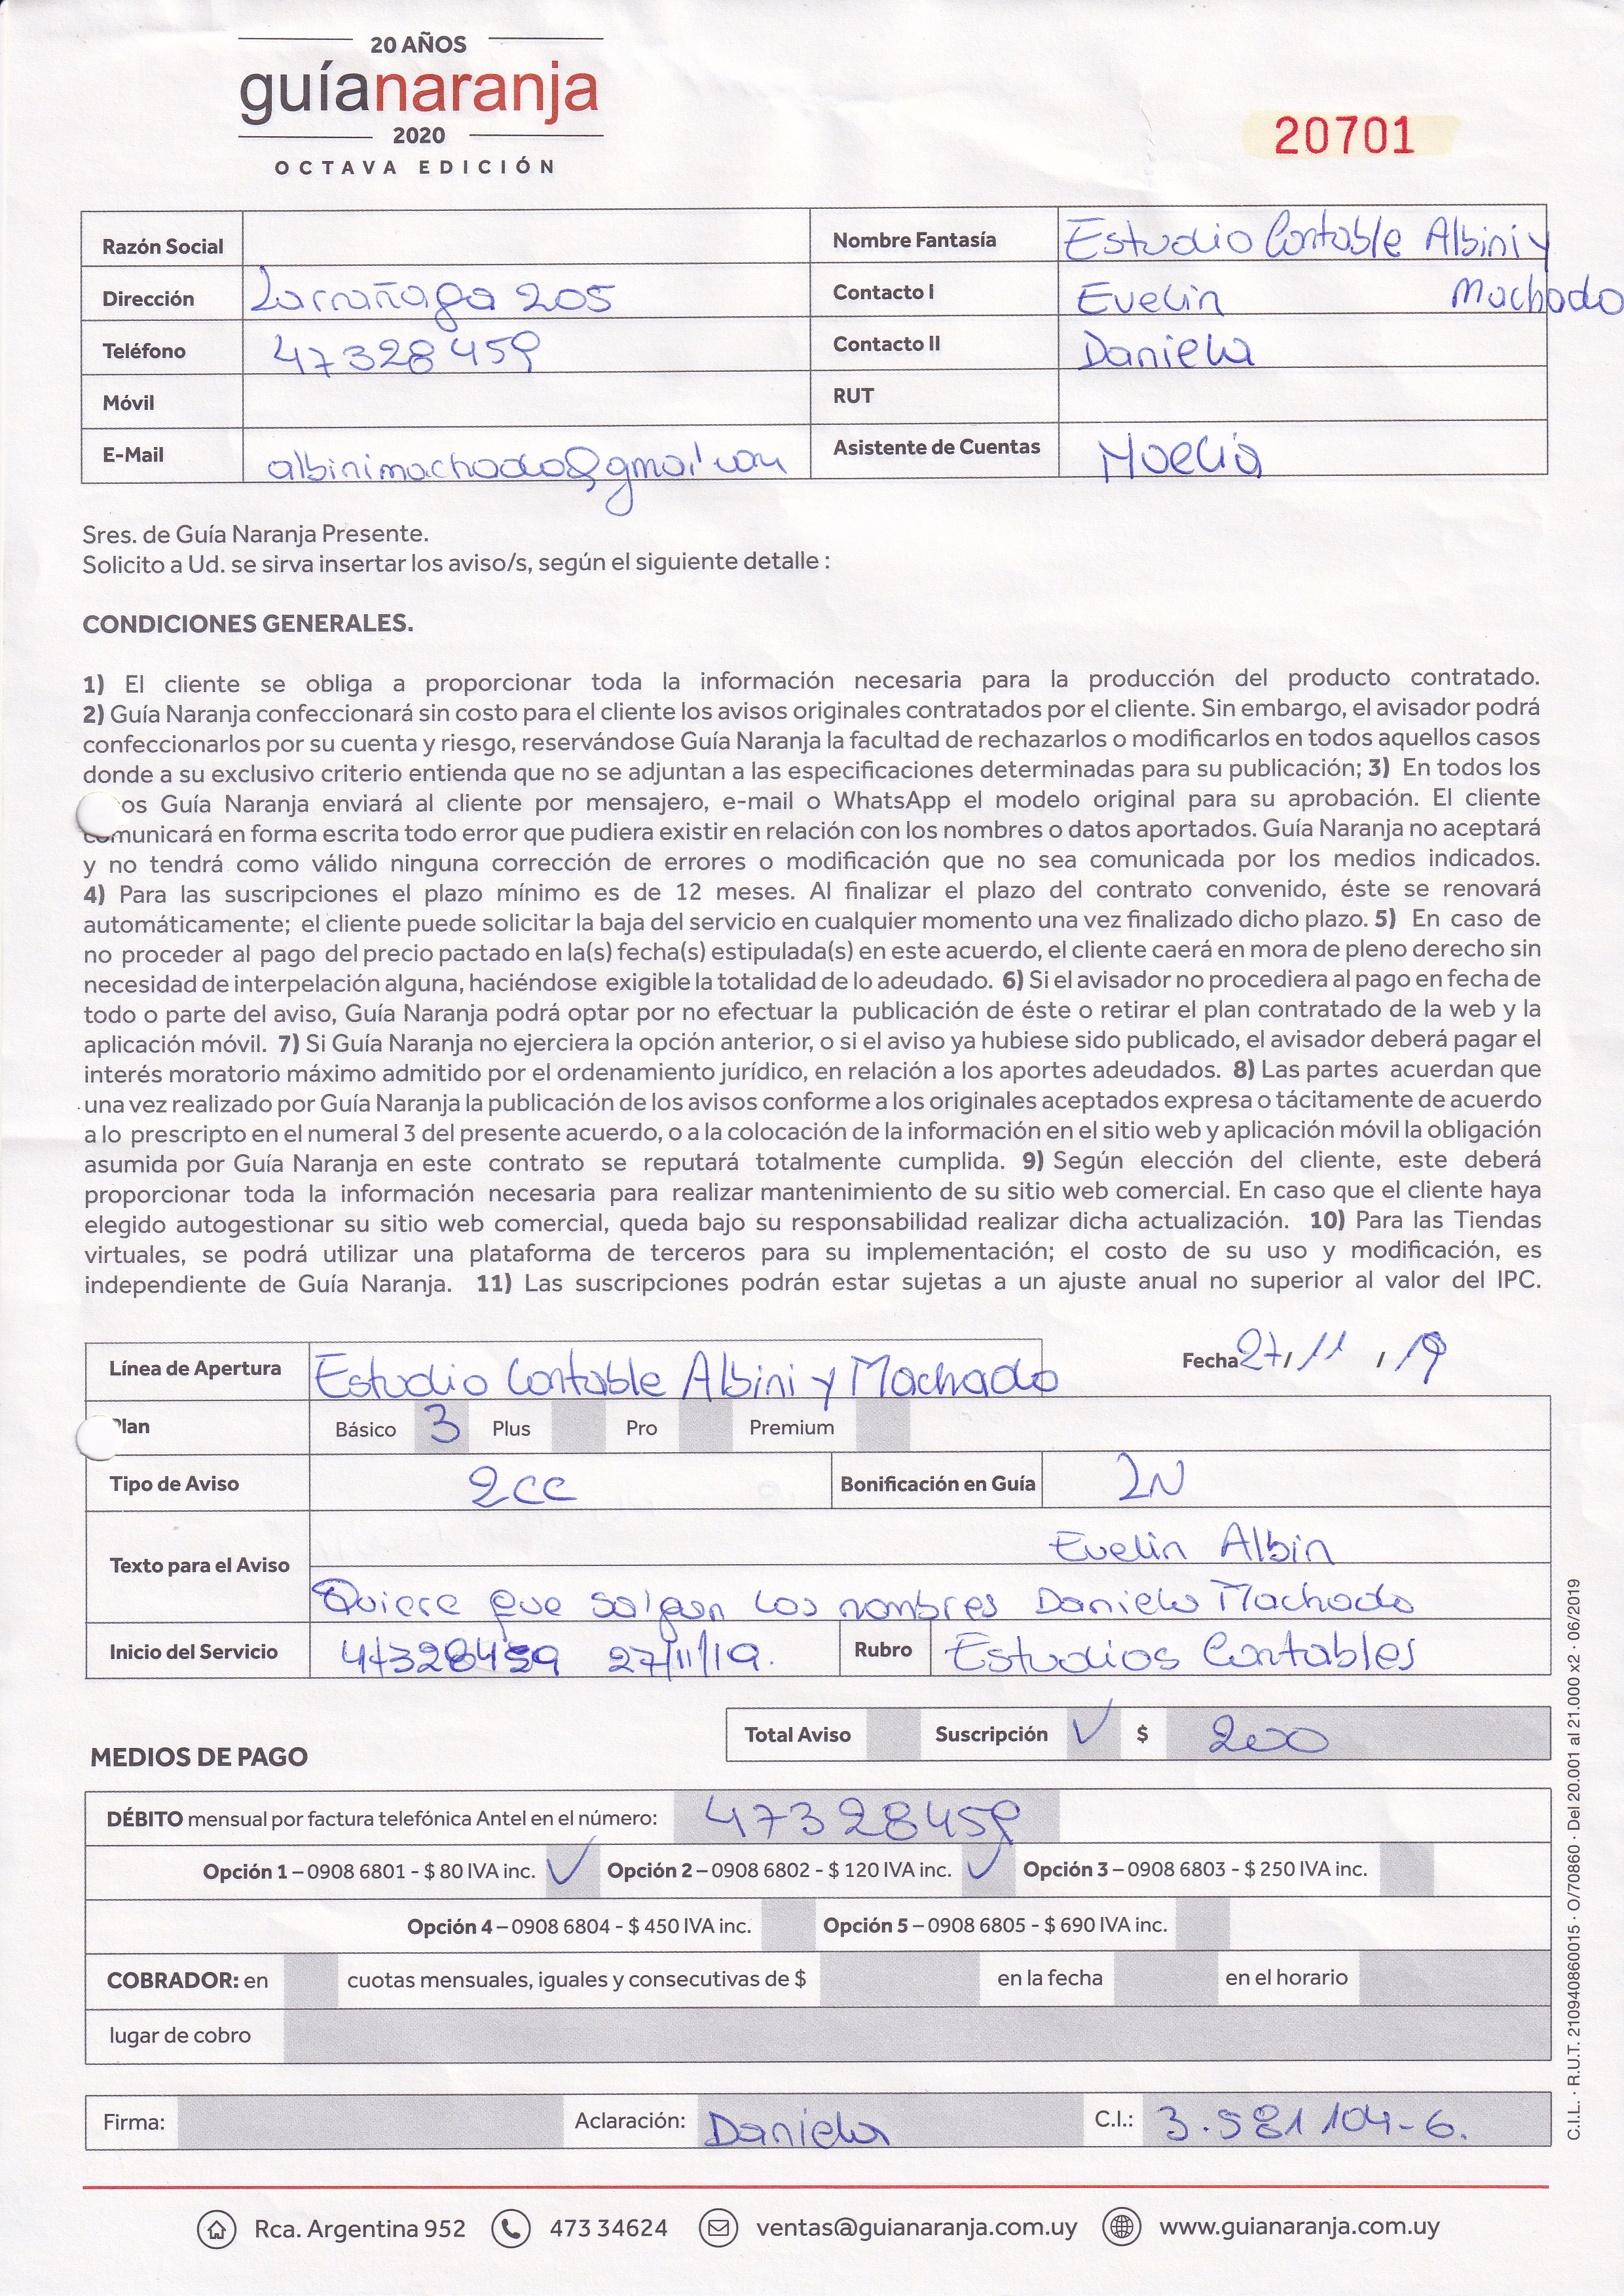 20 AÑOS
guíanaranja
2020
OCTAVA EDICIÓN
20701
Razón Social
Nombre Fantasía Estudio Contable Albini y
Machado
Dirección Larrañaga 205
Contacto I Evelin
Teléfono 47328459
Contacto II Daniela
Móvil
RUT
E-Mail albinimachado@gmail
Asistente de Cuentas Noelia
Sres. de Guía Naranja Presente.
Solicito a Ud. se sirva insertar los aviso/s, según el siguiente detalle :
CONDICIONES GENERALES.
1) El cliente se obliga a proporcionar toda la información necesaria para la producción del producto contratado.
2) Guía Naranja confeccionará sin costo para el cliente los avisos originales contratados por el cliente. Sin embargo, el avisador podrá
confeccionarlos por su cuenta y riesgo, reservándose Guía Naranja la facultad de rechazarlos o modificarlos en todos aquellos casos
donde a su exclusivo criterio entienda que no se adjuntan a las especificaciones determinadas para su publicación; 3) En todos los
os Guía Naranja enviará al cliente por mensajero, e-mail o WhatsApp el modelo original para su aprobación. El cliente
comunicará en forma escrita todo error que pudiera existir en relación con los nombres o datos aportados. Guía Naranja no aceptará
y no tendrá como válido ninguna corrección de errores o modificación que no sea comunicada por los medios indicados.
4) Para las suscripciones el plazo mínimo es de 12 meses. Al finalizar el plazo del contrato convenido, éste se renovará
automáticamente; el cliente puede solicitar la baja del servicio en cualquier momento una vez finalizado dicho plazo. 5) En caso de
no proceder al pago del precio pactado en la(s) fecha(s) estipulada(s) en este acuerdo, el cliente caerá en mora de pleno derecho sin
necesidad de interpelación alguna, haciéndose exigible la totalidad de lo adeudado. 6) Si el avisador no procediera al pago en fecha de
todo o parte del aviso, Guía Naranja podrá optar por no efectuar la publicación de éste o retirar el plan contratado de la web y la
aplicación móvil. 7) Si Guía Naranja no ejerciera la opción anterior, o si el aviso ya hubiese sido publicado, el avisador deberá pagar el
interés moratorio máximo admitido por el ordenamiento jurídico, en relación a los aportes adeudados. 8) Las partes acuerdan que
una vez realizado por Guía Naranja la publicación de los avisos conforme a los originales aceptados expresa o tácitamente de acuerdo
a lo prescripto en el numeral 3 del presente acuerdo, o a la colocación de la información en el sitio web y aplicación móvil la obligación
asumida por Guía Naranja en este contrato se reputará totalmente cumplida. 9) Según elección del cliente, este deberá
proporcionar toda la información necesaria para realizar mantenimiento de su sitio web comercial. En caso que el cliente haya
elegido autogestionar su sitio web comercial, queda bajo su responsabilidad realizar dicha actualización. 10) Para las Tiendas
virtuales, se podrá utilizar una plataforma de terceros para su implementación; el costo de su uso y modificación, es
independiente de Guía Naranja. 11) Las suscripciones podrán estar sujetas a un ajuste anual no superior al valor del IPC.
Línea de Apertura Estudio Contable Albini y Machado
Fecha 27/ 11 / 19
Plan Básico 3 Plus Pro Premium
Tipo de Aviso 2CC Bonificación en Guía 2N
Texto para el Aviso
Evelin Albin
Quiere que salgan los nombres Daniela Machado
Inicio del Servicio 47328459 27/11/19. Rubro Estudios Contables
Total Aviso Suscripción ✓ $ 200
MEDIOS DE PAGO
DÉBITO mensual por factura telefónica Antel en el número: 47328459
Opción 1 – 0908 6801 - $ 80 IVA inc. ✓ Opción 2 – 0908 6802 - $ 120 IVA inc. ✓ Opción 3 – 0908 6803 - $ 250 IVA inc.
Opción 4 – 0908 6804 - $ 450 IVA inc. Opción 5 – 0908 6805 - $ 690 IVA inc.
COBRADOR: en cuotas mensuales, iguales y consecutivas de $ en la fecha en el horario
lugar de cobro
Firma: Aclaración: Daniela C.I.: 3.581104-6.
Rca. Argentina 952 473 34624 ventas@guianaranja.com.uy www.guianaranja.com.uy
C.I.L. · R.U.T. 210940860015 · O/70860 · Del 20.001 al 21.000 x2 · 06/2019